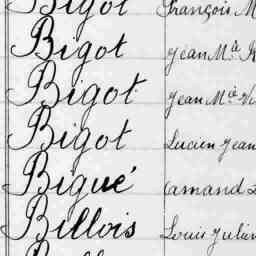 Bigot François M
Bigot Jean Mie
Bigot Jean Mie
Bigot Lucien Jean
Bigué Amand
Billois Louis Julien